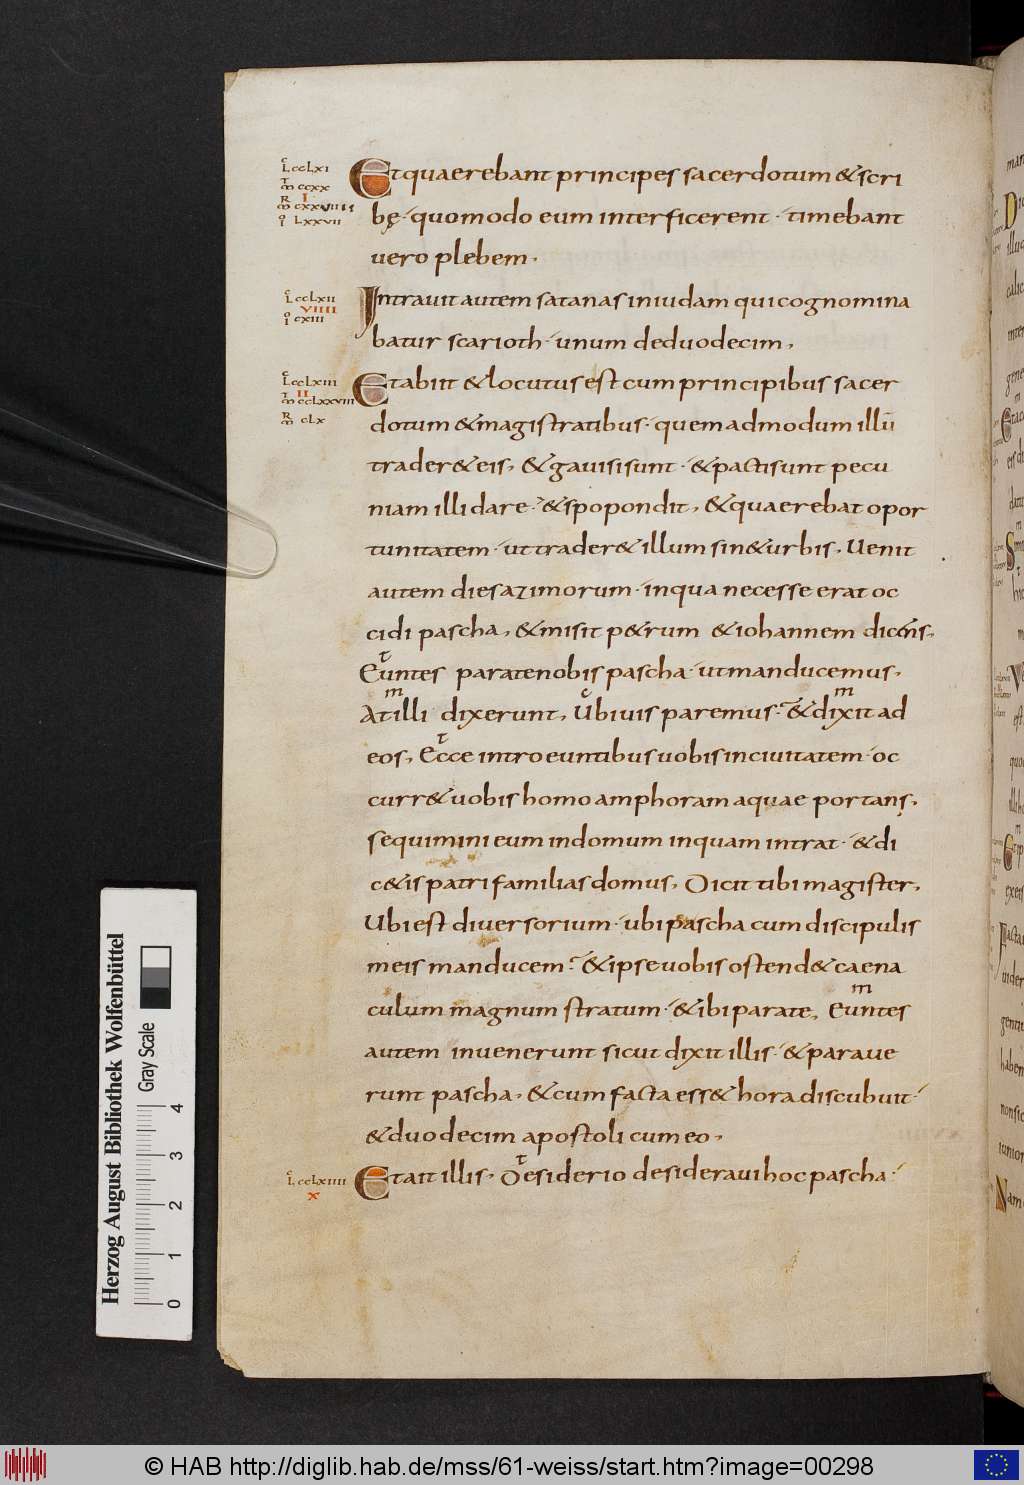 Lcclxi
mccxx
I
mcxxviiii
lxxvii
Etquaerebant principes sacerdotum &scri
bę· quomodo eum interficerent · timebant
uero plebem.
Lcclxii
VIIII
cxiii
Intrauit autem satanas iniudam qui cognomina
batur scarioth· unum deduodecim.
Lcclxiii
II
mcclxxviii
clx
Etabiit &locutus est cum principibus sacer
dotum &magistratibus· quemadmodum illū
trader& eis. &gauisi sunt· &pacti sunt pecu
niam illi dare· &spopondit. &quaerebat opor
tunitatem· ut trader& illum sin&urbis. Uenit
autem dies azimorum· inqua necesse erat oc
cidi pascha. &misit p&rum &iohannem dicens.
Euntes parate nobis pascha· utmanducemus.
At illi dixerunt. Ubi uis paremus· &dixit ad
eos. Ecce intro euntibus uobis inciuitatem· oc
curr& uobis homo amphoram aquae portans.
sequimini eum indomum inquam intrat· &di
c&is patri familias domus. Dicit tibi magister.
Ubi est diuersorium· ubi pascha cum discipulis
meis manducem· &ipse uobis ostend& caena
culum magnum stratum· &ibi parate. Euntes
autem inuenerunt sicut dixit illis· &paraue
runt pascha. &cum facta ess& hora discubuit·
&duodecim apostoli cum eo.
Lcclxiiii
X
Etait illis. Desiderio desideraui hoc pascha·
Herzog August Bibliothek Wolfenbüttel
Gray Scale
0 1 2 3 4
© HAB http://diglib.hab.de/mss/61-weiss/start.htm?image=00298